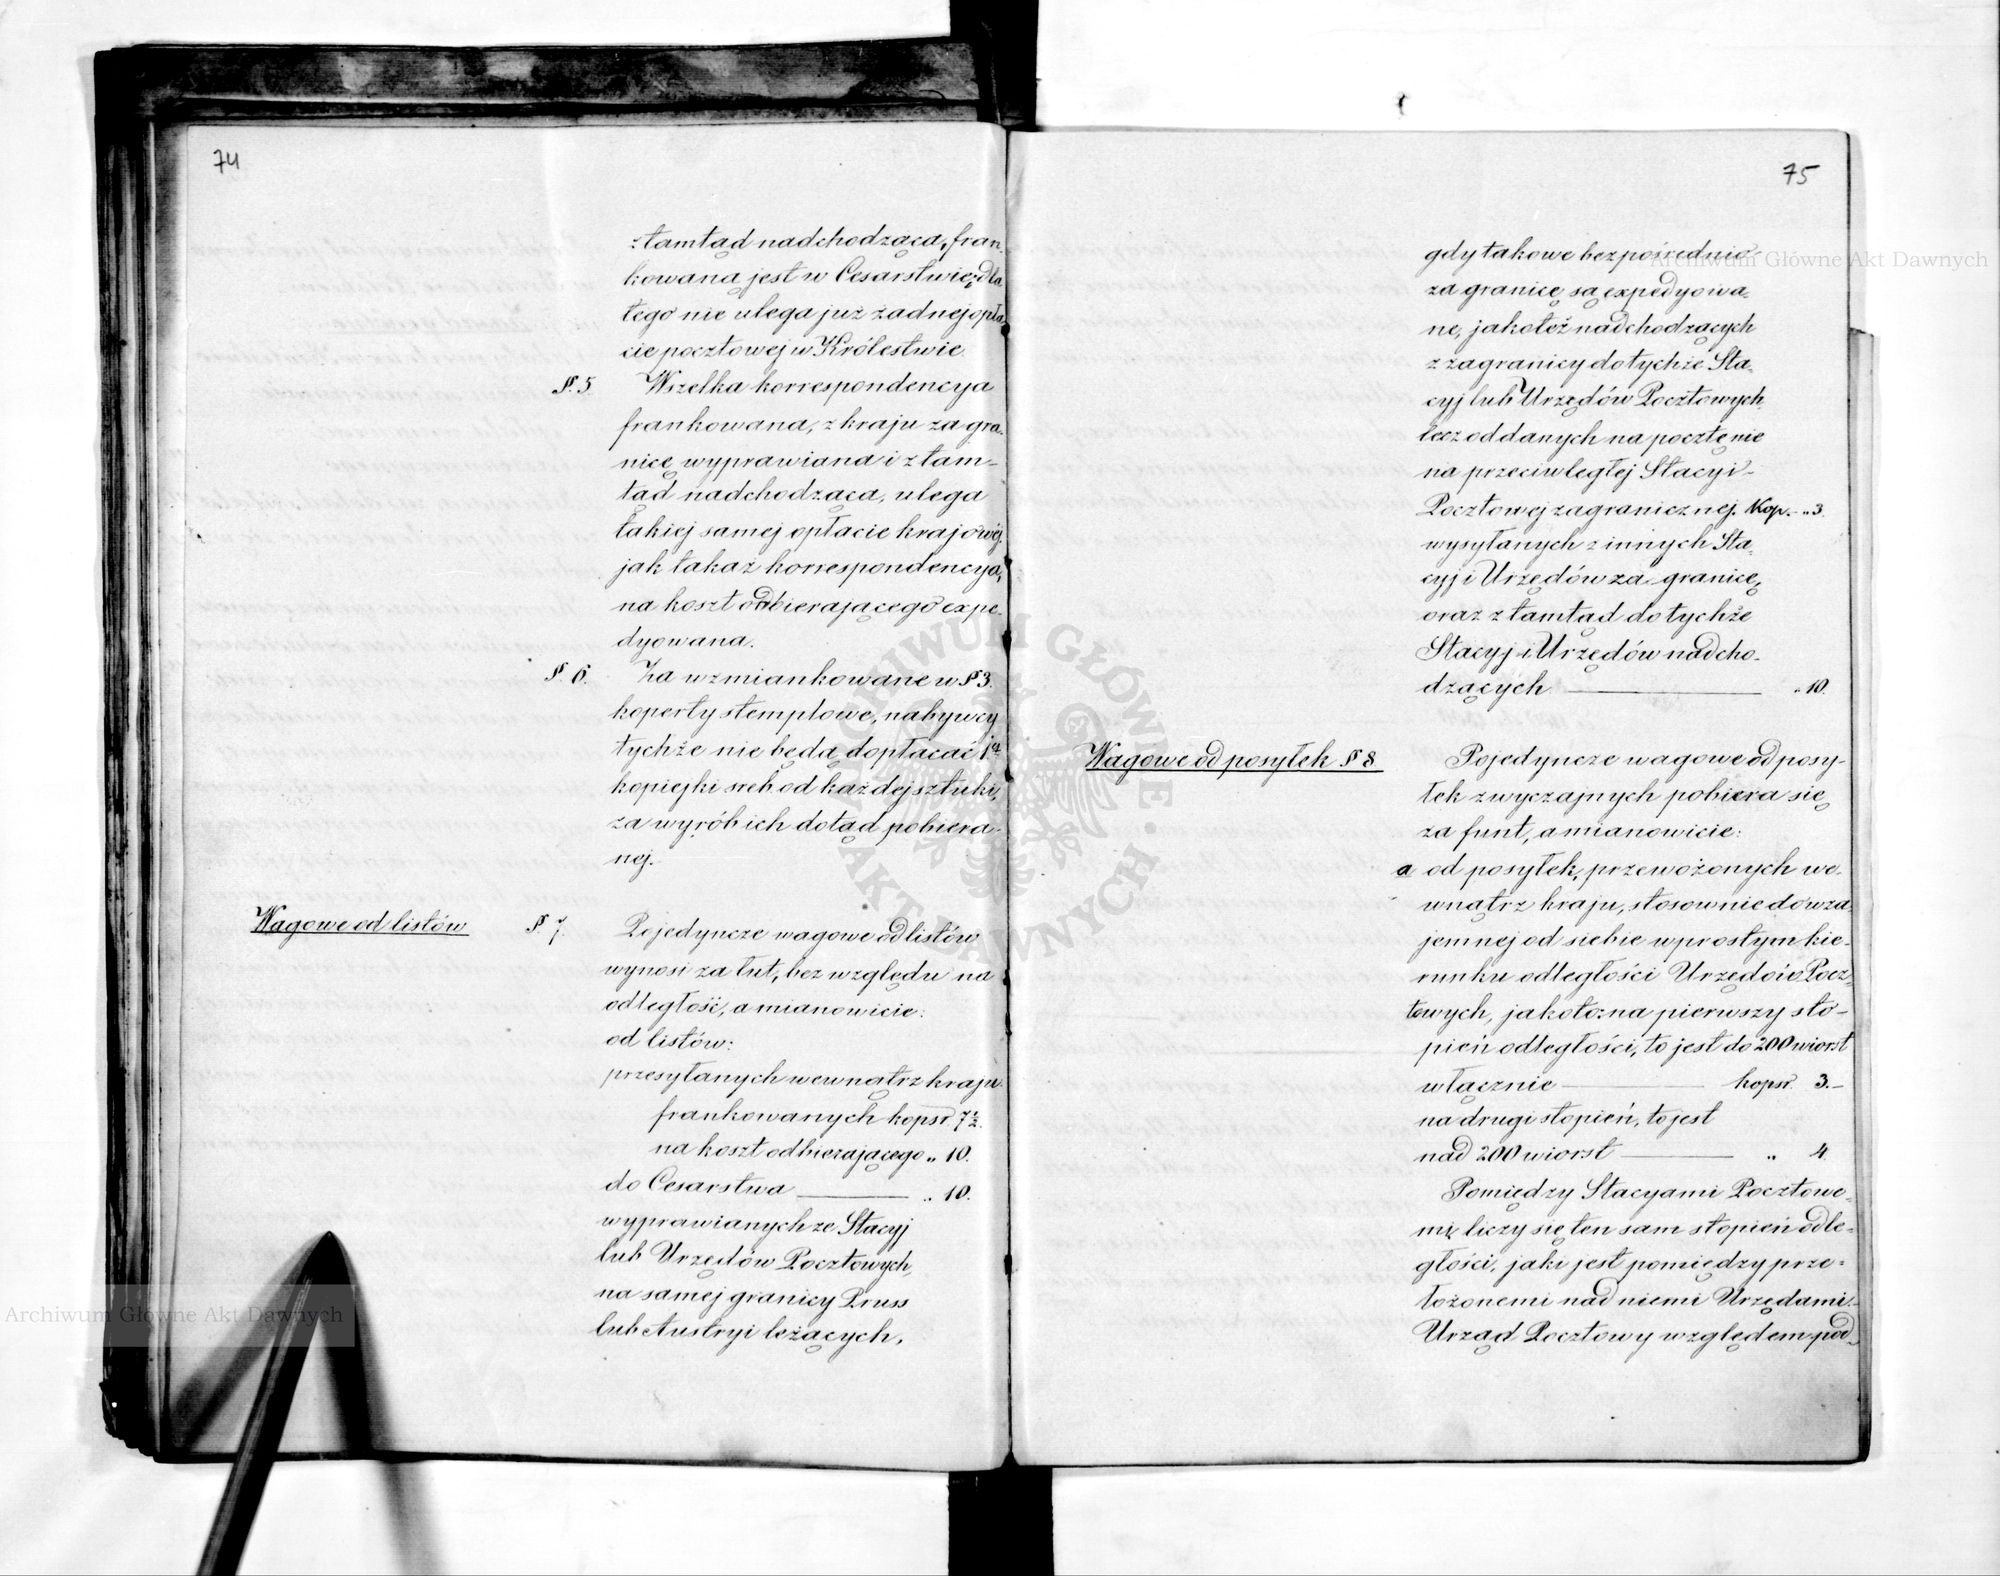 74
ztamtąd nadchodząca, fran-
kowaną jest w Cesarstwie, dla
tego nie ulega już żadnej opła-
cie pocztowej w Królestwie.
§. 5. Wszelka korrespondencya
frankowana, z kraju za gra-
nicę wyprawiana i z tam-
tąd nadchodząca, ulega
takiej samej opłacie krajowéj,
jak takaż korrespondencya,
na koszt odbierającego expe-
dyowana.
§. 6. Za wzmiankowane w § 3.
koperty stemplowe, nabywcy
tychże nie będą dopłacać
kopiejki sreb. od każdej sztuki,
za wyrób ich dotąd pobiera-
nej.
Wagowe od listów § 7. Pojedyncze wagowe od listów
wynosi za łut, bez względu na
odległość, a mianowicie:
od listów:
przesyłanych wewnątrz kraju
frankowanych kop sr. 7½.
na koszt odbierającego „ 10.
do Cesarstwa „ 10.
wyprawianych ze Stacyj
lub Urzędów Pocztowych,
na samej granicy Pruss
lub Austryi leżących,
75
gdy takowe bezpośrednio
za granicę są expedyowa-
ne, jakoteż nadchodzących
z zagranicy do tychże Sta-
cyj lub Urzędów Pocztowych,
lecz oddanych na pocztę nie
na przeciwległej Stacyi
Pocztowej zagranicznej. Kop. „ 3.
wysyłanych z innych Sta-
cyj i Urzędów za granicę,
oraz z tamtąd do tychże
Stacyj i Urzędów nadcho-
dzących „ 10.
Wagowe od posyłek § 8. Pojedyncze wagowe od posy-
łek zwyczajnych pobiera się
za funt, a mianowicie:
a od posyłek, przewożonych we-
wnątrz kraju, stosownie do wza-
jemnej od siebie w prostym kie-
runku odległości Urzędów Pocz-
towych, jakoto: na pierwszy sto-
pień odległości, to jest do 200 wiorst
włącznie kop sr. 3.–
na drugi stopień, to jest
nad 200 wiorst „ 4
Pomiędzy Stacyami Pocztowe-
mi, liczy się ten sam stopień odle-
głości, jaki jest pomiędzy prze-
łożonemi nad niemi Urzędami.
Urząd Pocztowy względem pod-
Archiwum Główne Akt Dawnych
Archiwum Główne Akt Dawnych
ARCHIWUM GŁÓWNE AKT DAWNYCH